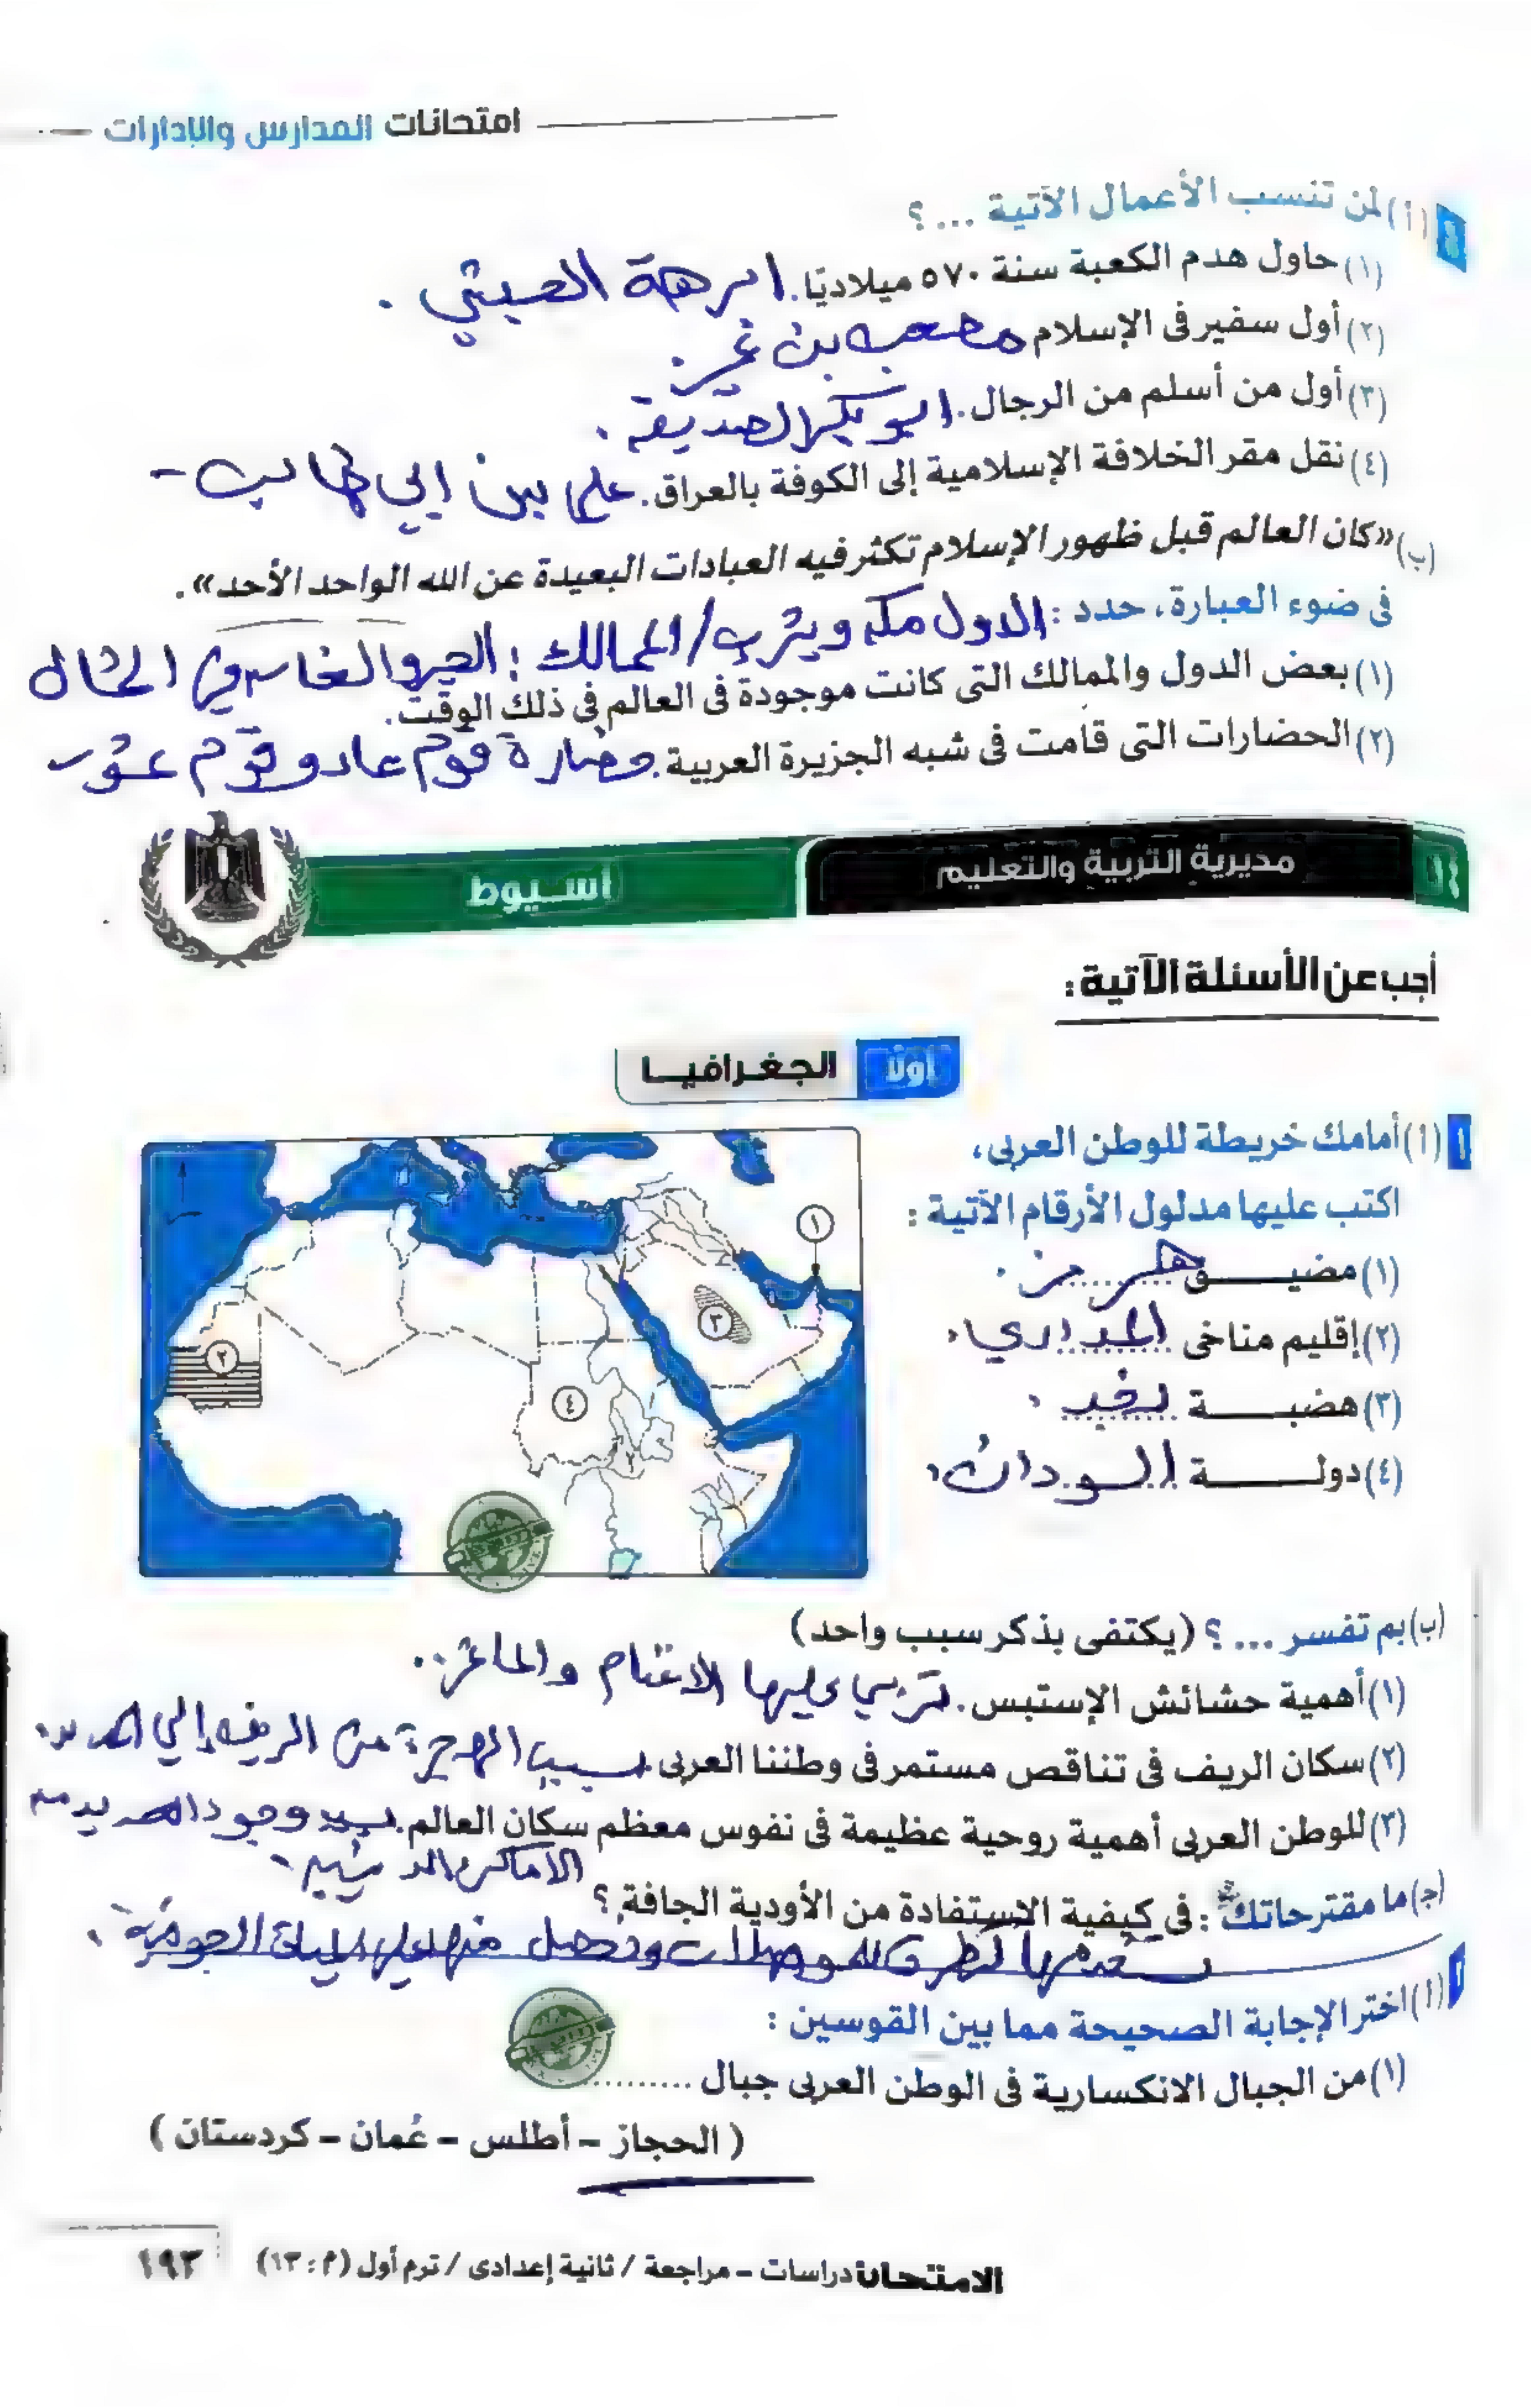 امتحانات المدارس والإدارات
٤ (أ) لمن تنسب الأعمال الآتية ... ؟
(١) حاول هدم الكعبة سنة ٥٧٠ ميلاديًا. ابرهة الحبشي .
(٢) أول سفير فى الإسلام مصعب بن عمير.
(٣) أول من أسلم من الرجال. ابو بكر الصديق .
(٤) نقل مقر الخلافة الإسلامية إلى الكوفة بالعراق. على بن ابي طالب -
(ب) «كان العالم قبل ظهور الإسلام تكثر فيه العبادات البعيدة عن الله الواحد الأحد».
فى ضوء العبارة، حدد : الدول مكة ويثرب / الممالك :
(١) بعض الدول والممالك التى كانت موجودة فى العالم فى ذلك الوقت.
(٢) الحضارات التى قامت فى شبه الجزيرة العربية. حضارة قوم عاد و قوم
٥٤ مديرية التربية والتعليم أسيوط
أجب عن الأسئلة الآتية :
أولًا الجغرافيا
١ (أ) أمامك خريطة للوطن العربى،
اكتب عليها مدلول الأرقام الآتية :
(١) مضيق هرمز .
(٢) إقليم مناخى المداري .
(٣) هضبة نجد .
(٤) دولة السودان .
١
٢
٣
٤
(ب) بم تفسر ... ؟ (يكتفى بذكر سبب واحد)
(١) أهمية حشائش الإستبس. تربي عليها الاغنام والماعز .
(٢) سكان الريف فى تناقص مستمر فى وطننا العربى. بسبب الهجرة من الريف إلي المدن .
(٣) للوطن العربى أهمية روحية عظيمة فى نفوس معظم سكان العالم. بسبب وجود العديد من
الاماكن الدينية -
(جـ) ما مقترحاتك : فى كيفية الاستفادة من الأودية الجافة ؟
للمواصلات ونحصل منها علي المياة الجوفية .
٢ (أ) اختر الإجابة الصحيحة مما بين القوسين :
(١) من الجبال الانكسارية فى الوطن العربى جبال ...........
( الحجاز – أطلس – عُمان – كردستان )
الامتحان دراسات – مراجعة / ثانية إعدادى / ترم أول (م : ١٣) ١٩٣